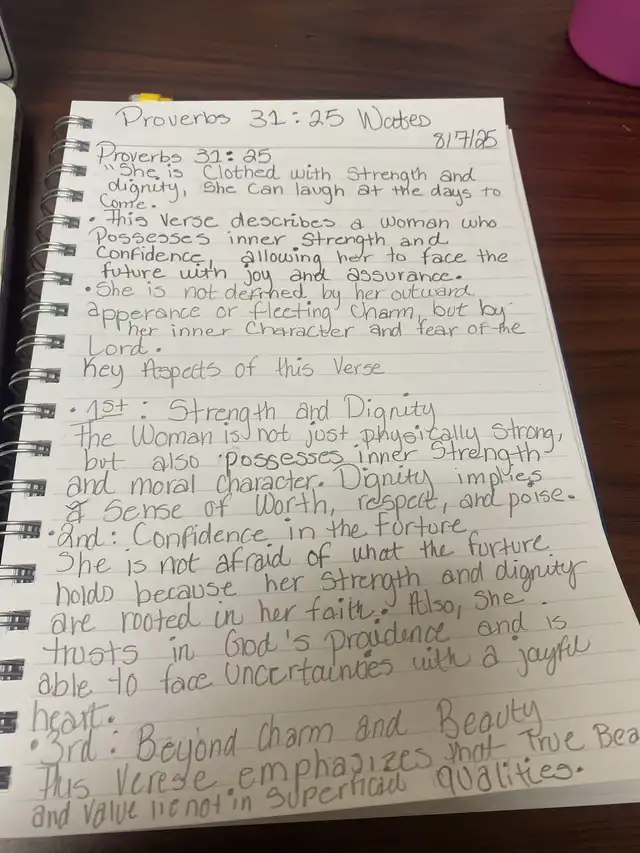 Proverbs 31:25 Woates
8/7/25
Proverbs 31:25
"She is Clothed with Strength and
dignity, She Can laugh at the days to
Come.
• This Verse describes a Woman who
Possesses inner Strength and
Confidence, allowing her to face the
future with joy and assurance.
• She is not defined by her outward
apperance or fleeting Charm, but by
her inner Character and fear of the
Lord.
Key Aspects of this Verse
• 1st: Strength and Dignity
The Woman is not just physically Strong,
but also possesses inner Strength
and moral Character. Dignity implies
a Sense of Worth, respect, and poise.
• 2nd: Confidence in the Forture
She is not afraid of what the furture
holds because her Strength and dignity
are rooted in her faith. Also, She
trusts in God's providence and is
able to face Uncertainties with a jayful
heart.
• 3rd: Beyond Charm and Beauty
This Verese emphasizes that True Bea
and Value lie not in Superficial qualities.